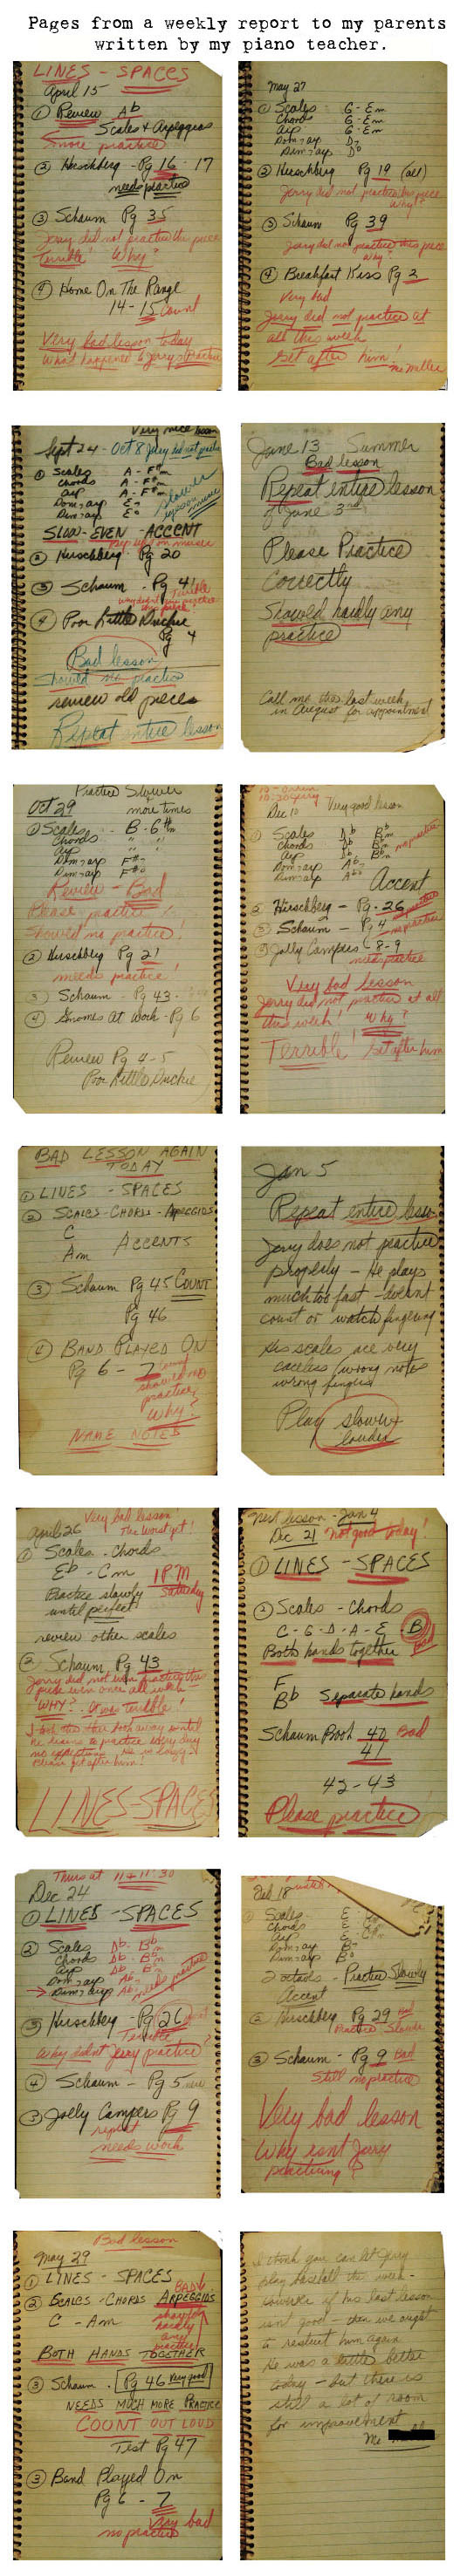 Pages from a weekly report to my parents
written by my piano teacher.
LINES - SPACES
April 15
① Review Ab
Scales & Arpeggios
more practice
② Hirschberg - Pg 16 - 17
needs practice
③ Schaum Pg 35
Jerry did not practice this piece
Terrible Why?
④ Home On The Range
14 - 15 Count
Very bad lesson today
What happened to Jerry's practice
May 27
① Scales G - Em
Chords G - Em
Arp G - Em
Dom 7 arp D7
Dim 7 arp D°
② Hirschberg Pg 19 (all)
Jerry did not practice this piece
Why?
③ Schaum Pg 39
Jerry did not practice this piece
Why?
④ Breakfast Kiss Pg 2
Very bad
Jerry did not practice at
all this week
Get after him!
Very nice lesson
Sept 24 - Oct 8 Jerry did not practice
① Scales A - F#m
Chords A - F#m
Arp A - F#m
Dom 7 arp E
Dim 7 arp E°
slower
SLOW - EVEN - ACCENT
② Hirschberg Pg 20
③ Schaum - Pg 41
Terrible
④ Poor Little Duckie
Pg 4
Bad lesson
Showed no practice
review old pieces
Repeat entire lesson
June 13 Summer
Bad lesson
Repeat entire lesson
of June 3rd
Please Practice
Correctly
Showed hardly any
practice
Call me the last week
in August for appointment
Practice Slower
Oct 29 more times
① Scales B - G#m
Chords " "
Arp " "
Dom 7 arp F#
Dim 7 arp F#°
Review - Bad
Please practice
Showed no practice!
② Hirschberg Pg 21
needs practice!
③ Schaum - Pg 43
④ Gnomes At Work - Pg 6
Review Pg 4-5
Poor Little Duckie
Dec 10 Very good lesson
① Scales Db Bbm
Chords Db Bbm
Arp Db Bbm
Dom 7 arp Ab
Dim 7 arp Ab°
no practice
Accent
② Hirschberg - Pg. 26
③ Schaum - Pg 4 no practice
③ Jolly Campers 8-9
needs practice
Very bad lesson
Jerry did not practice at all
this week! Why?
Terrible! Get after him
BAD LESSON AGAIN
TODAY
① LINES - SPACES
② SCALES - CHORDS - ARPEGGIOS
C
Am ACCENTS
③ Schaum Pg 45 COUNT
Pg 46
④ BAND PLAYED ON
Pg 6 - 7
showed no
practice
Why?
NAME NOTES
Jan 5
Repeat entire lesson
Jerry does not practice
properly - He plays
much too fast - doesn't
count or watch fingering
His scales are very
careless (wrong notes
wrong fingers
Play slower &
louder
Very bad lesson
April 26 The worst yet!
① Scales - Chords
Eb - Cm 1 P.M
Saturday
Practice slowly
until perfect
review other scales
② Schaum Pg 43
Jerry did not even practice this
piece even once all week
WHY? It was terrible!
I took this star back away until
he learns to practice every day
no exceptions. He is lazy.
Please get after him!
LINES-SPACES
Next lesson - Jan 4
Dec 21 Not good today!
① LINES - SPACES
② Scales - Chords
C - G - D - A - E - B
Both hands together bad
F
Bb Separate hands
Schaum Book 40 Bad
41
42 - 43
Please practice
Thurs at 11 - 11:30
Dec 24
① LINES - SPACES
② Scales Db - Bbm
Chords Db - Bbm
Arp Db - Bbm
Dom 7 arp Ab
Dim 7 arp Ab°
needs practice
③ Hirschberg - Pg 26
Terrible
Why didn't Jerry practice?
④ Schaum - Pg 5 new
③ Jolly Campers Pg 9
repeat
needs work
Feb 18
① Scales E - C#m
Chords E - C#m
Arp E - C#m
Dom 7 arp B
Dim 7 arp B°
2 octaves - Practice Slowly
Accent
② Hirschberg Pg 29 Bad
Practice Slower
③ Schaum - Pg 9 Bad
Still no practice
Very bad lesson
Why isn't Jerry
practicing?
Bad lesson
May 29
① LINES - SPACES
② SCALES - CHORDS ARPEGGIOS
BAD!
C - Am
showed
hardly
any
practice
BOTH HANDS TOGETHER
③ Schaum - Pg 46 Very good
NEEDS MUCH MORE PRACTICE
COUNT OUT LOUD
Test Pg 47
③ Band Played On
Pg 6 - 7
Very bad
no practice
I think you can let Jerry
play baseball this week -
However if his last lesson
isn't good - then we ought
to restrict him again
He was a little better
today - but there is
still a lot of room
for improvement